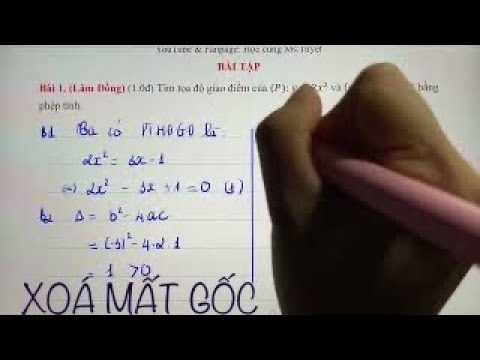 YouTube & Fanpage: Học cùng Ms.Tuyết
BÀI TẬP
Bài 1. (Lâm Đồng) (1.0đ) Tìm tọa độ giao điểm của (P): y 2x² và bằng
phép tính.
B1 Ta có PTHĐGĐ là:
2x² = 3x - 1
(=) 2x² - 3x + 1 = 0 (1)
B2 Δ = b² - 4ac
= (-3)² - 4.2.1
= 1 > 0
XOÁ MẤT GỐC